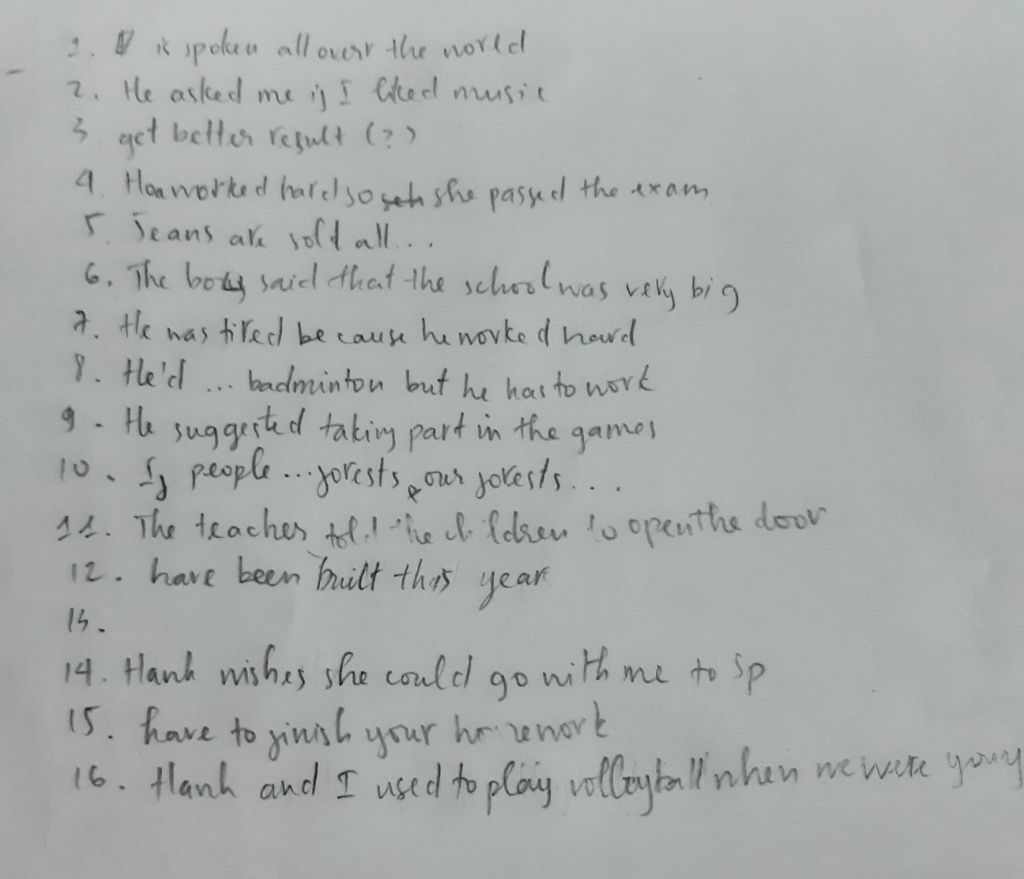 1. is spoken all over the world
2. He asked me if I liked music
3 get better result (?)
4. Hoa worked hard so she passed the exam
5. Jeans are sold all...
6. The boy said that the school was very big
7. He was tired because he worked hard
8. He'd ... badminton but he has to work
9. He suggested taking part in the games
10. If people ... forests, our forests...
11. The teacher told the children to open the door
12. have been built this year
13.
14. Hanh wishes she could go with me to
15. have to finish your homework
16. Hanh and I used to play volleyball when we were young